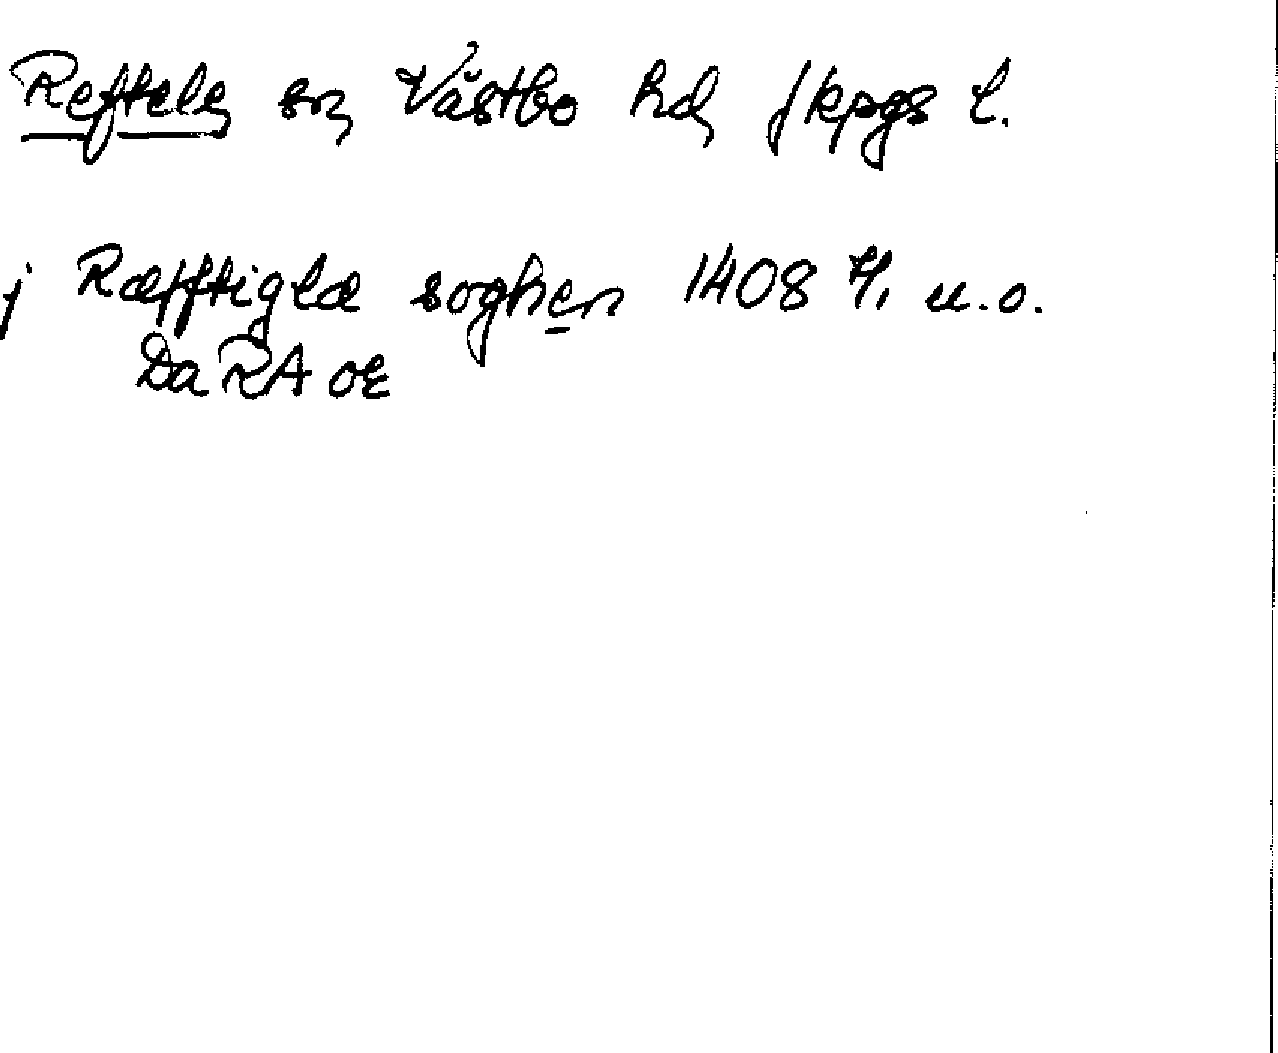 Reftele sn Västbo hd Jkpgs l.
j Ræfftiglæ soghen 1408 7/1 u.o.
Da RA OE